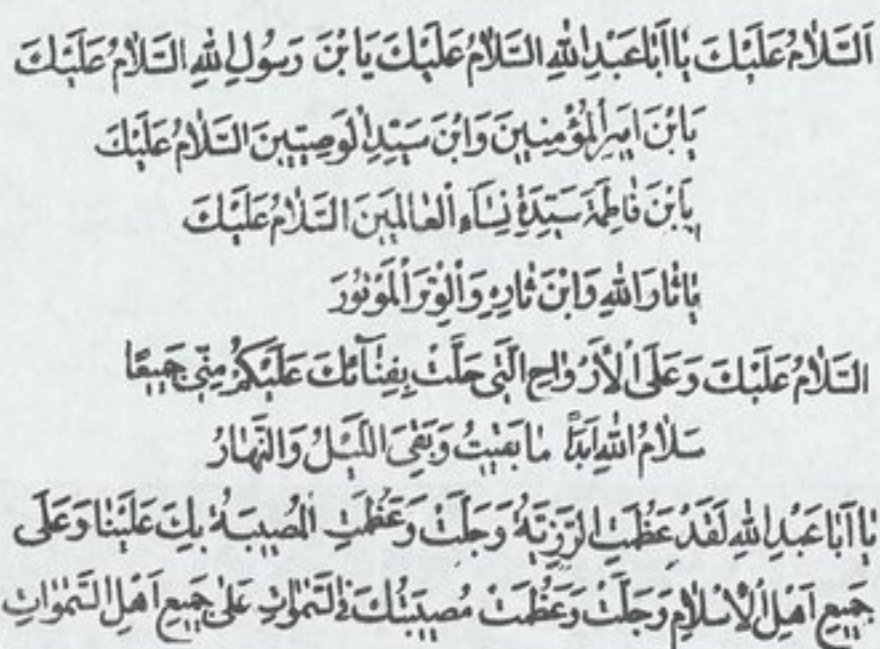 اَلسَّلامُ عَلَيْكَ يا اَبا عَبْدِ اللهِ السَّلامُ عَلَيْكَ يَا بْنَ رَسُولِ اللهِ السَّلامُ عَلَيْكَ
يَابْنَ اَمِيرِ الْمُؤْمِنِينَ وَابْنَ سَيِّدِ الْوَصِيّينَ السَّلامُ عَلَيْكَ
يَابْنَ فاطِمَةَ سَيِّدَةِ نِسَاءِ الْعالَمِينَ السَّلامُ عَلَيْكَ
يا ثارَ اللهِ وَابْنَ ثارِهِ وَالْوِتْرَ الْمَوْتُورَ
السَّلامُ عَلَيْكَ وَعَلَى الْاَرْواحِ الَّتِي حَلَّتْ بِفِنائِكَ عَلَيْكُمْ مِنّي جَميعًا
سَلامُ اللهِ اَبَدًا ما بَقيتُ وَبَقِيَ اللَّيْلُ وَالنَّهارُ
يا اَبا عَبْدِ اللهِ لَقَدْ عَظُمَتِ الرَّزِيَّةُ وَجَلَّتْ وَعَظُمَتِ الْمُصيبَةُ بِكَ عَلَيْنا وَعَلى
جَميعِ اَهْلِ الْاِسْلامِ وَجَلَّتْ وَعَظُمَتْ مُصيبَتُكَ فِي السَّمٰواتِ عَلى جَميعِ اَهْلِ السَّمٰواتِ